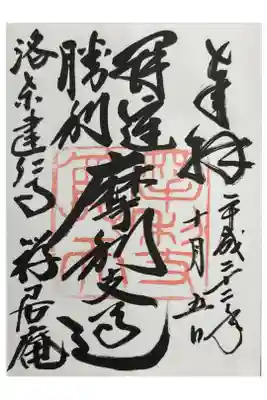 奉拝
平成二十二年
十月五日
開運
勝利
摩利支
洛東建仁寺
禅居庵